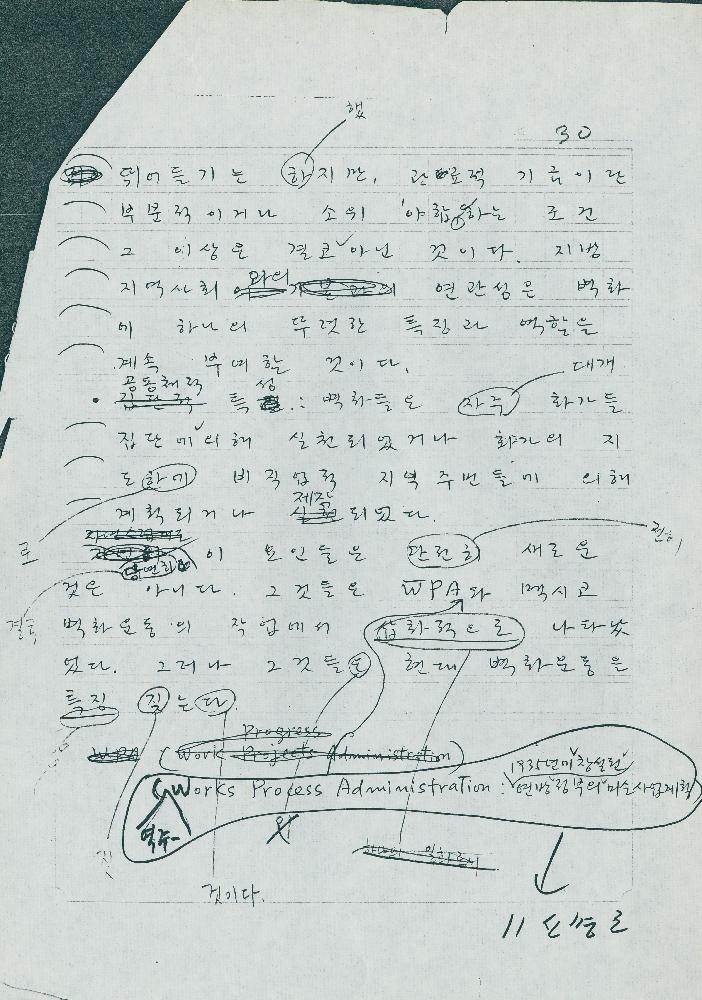 햇
30
뛰어들기는 하지만, 관료적 기금이란
부분적이거나 소위 '야합'하는 조건
그 이상은 결코 아닌 것이다. 지방
와의
지역사회 연관성은 벽화
에 하나의 뚜렷한 특징과 역할을
계속 부여할 것이다.
대개
공동체적 성
집단적 특 : 벽화들은 자주 화가들
집단에 의해 실천되었거나 화가의 지
도하에 비직업적 지역주민들에 의해
제작
계획되거나 되었다.
로
이 요인들은 완전히 새로운
전혀
당연히
것은 아니다. 그것들은 WPA와 멕시코
결국
벽화운동의 작업에서 나타났
었다. 그러나 그것들은 현대 벽화운동을
특징 짓는다.
Progress
WPA (Work Projects Administration)
1935년에 창설된
(Works Process Administration : 연방정부의 미술사업계획
역주
짓
것이다.
11 신영로